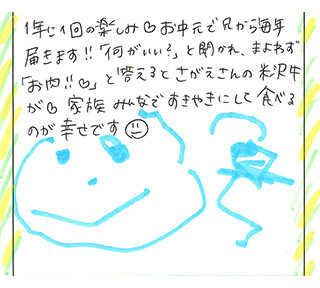 1年に1回の楽しみ♡お中元で兄から毎年
届きます!!「何がいい?」と聞かれ、まよわず
「お肉!!♡」と答えるとさがえさんの米沢牛
が♡ 家族みんなですきやきにして食べる
のが幸せです☺